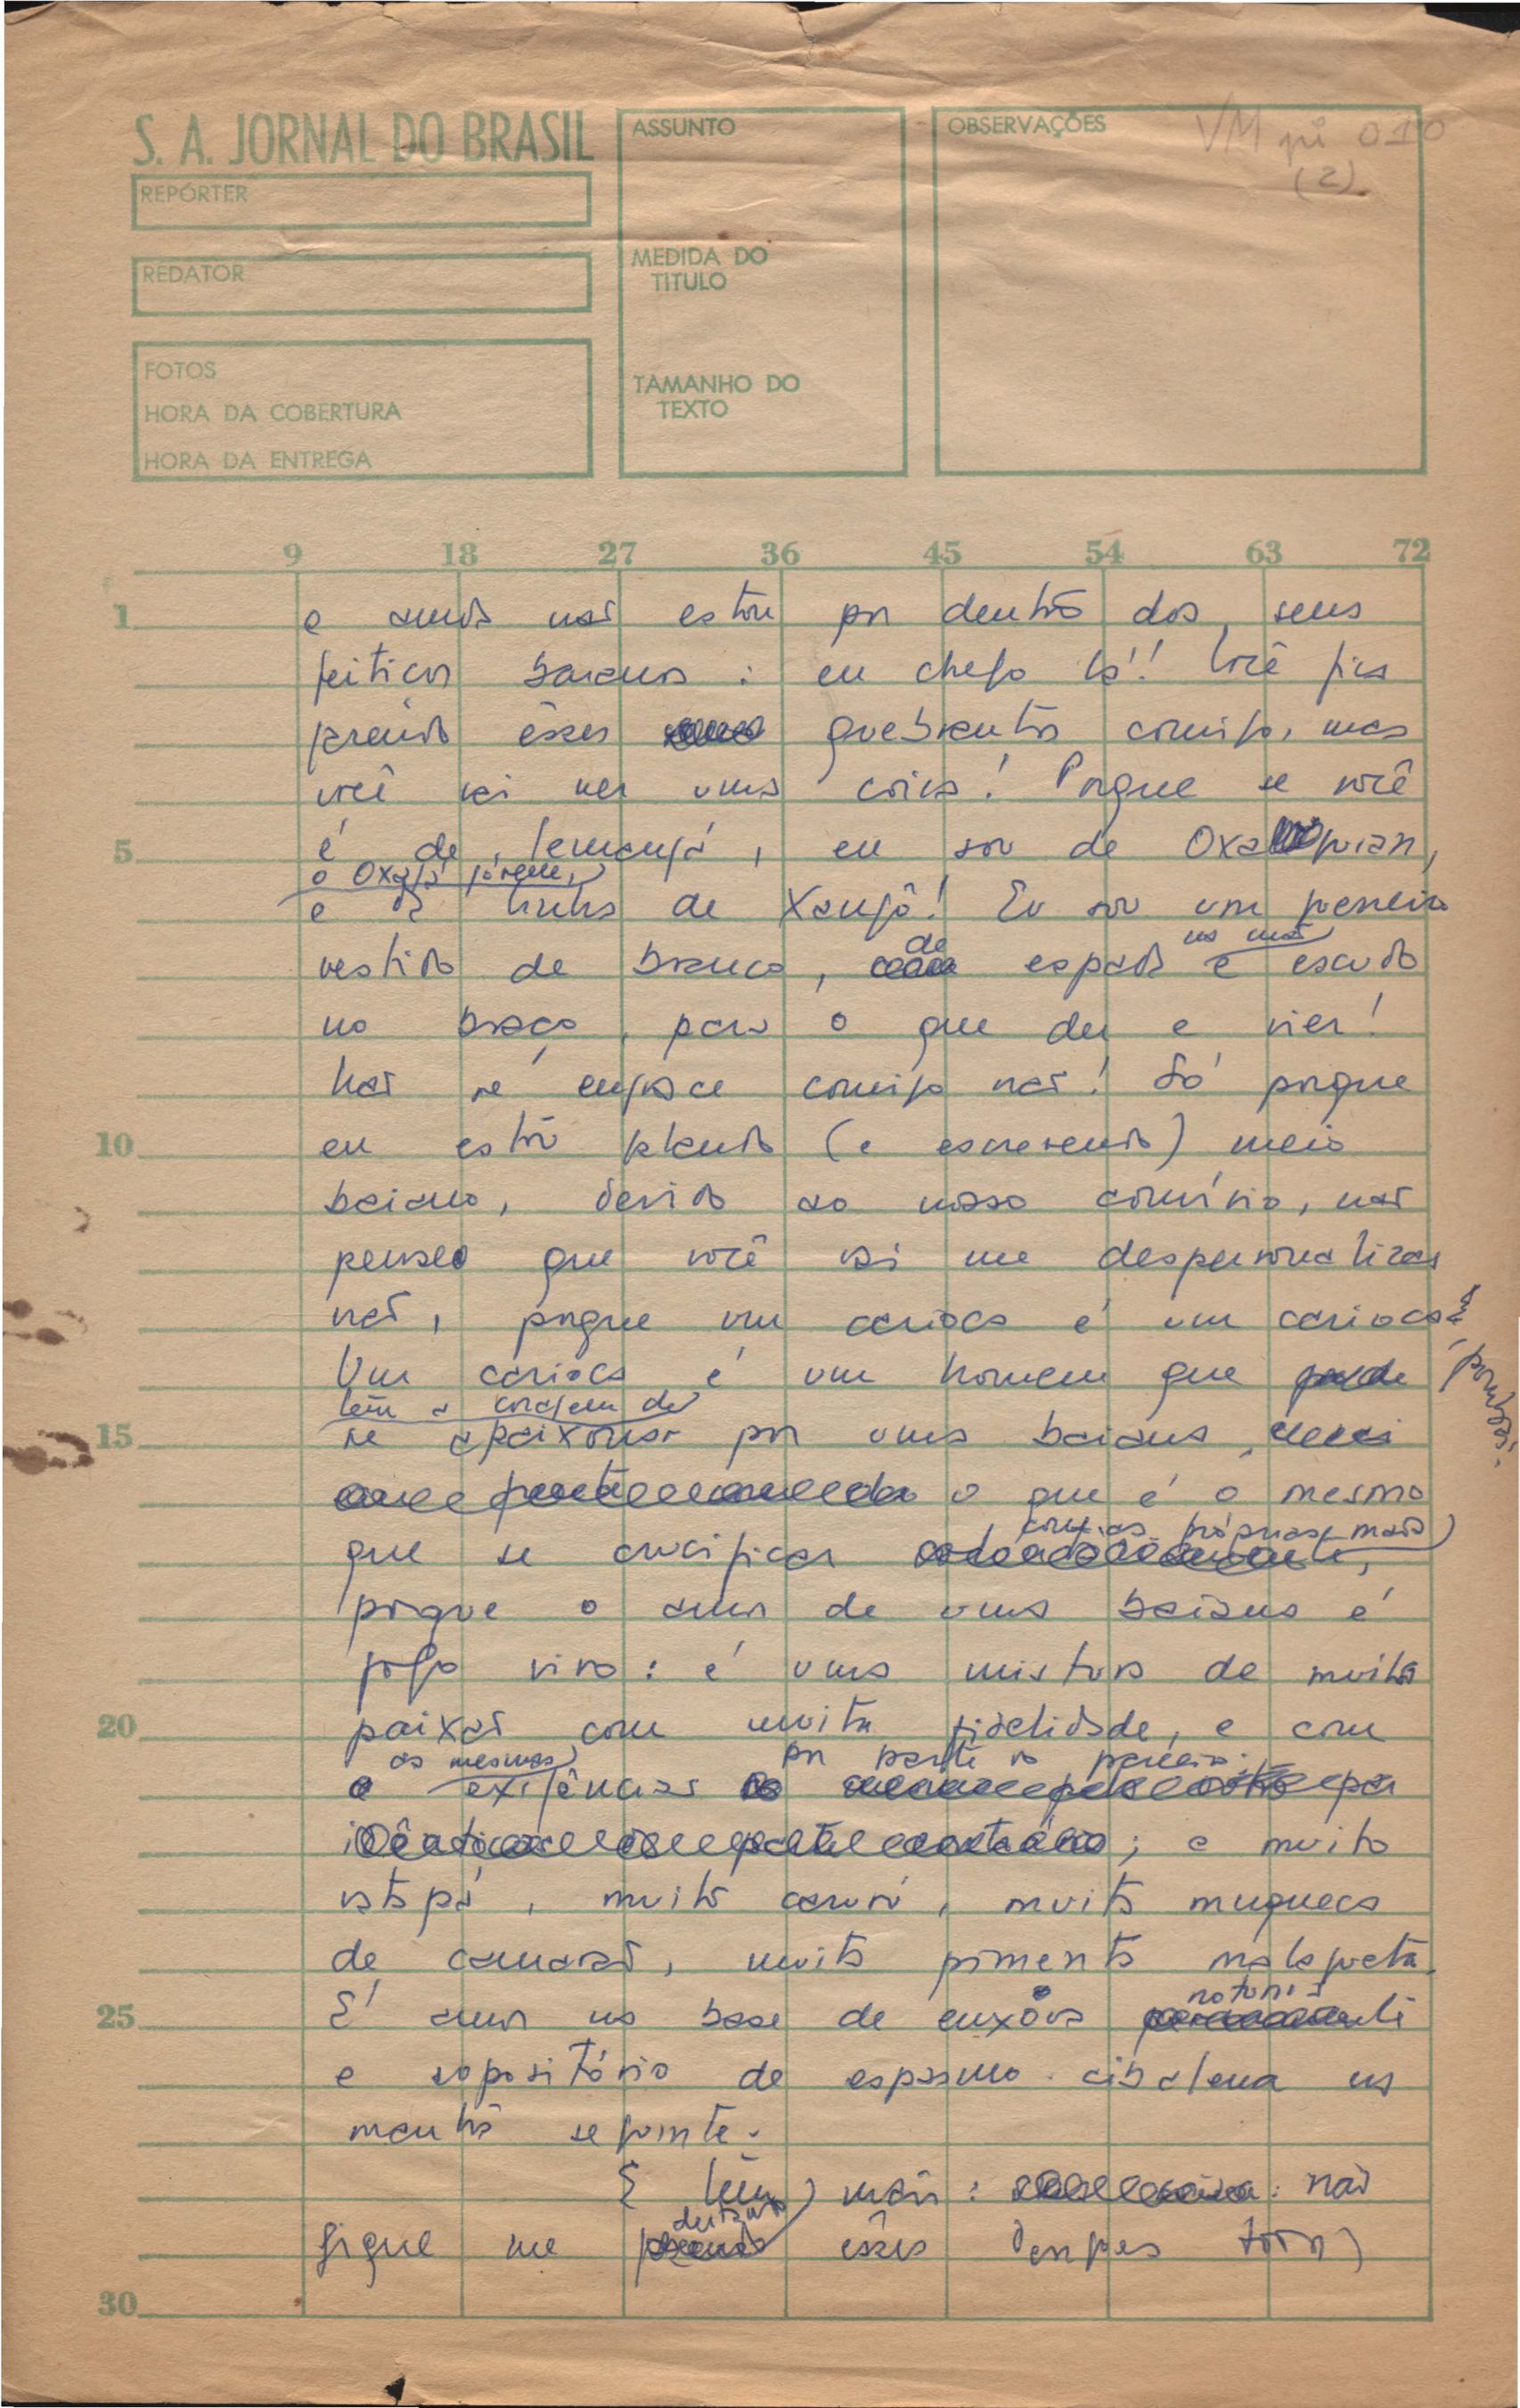 S. A. JORNAL DO BRASIL
REPÓRTER
REDATOR
FOTOS
HORA DA COBERTURA
HORA DA ENTREGA
ASSUNTO
MEDIDA DO
TITULO
TAMANHO DO
TEXTO
OBSERVAÇÕES
VM pi 010
(2)
9 18 27 36 45 54 63 72
1 e ainda não estou por dentro dos seus
feitiços baianos: eu chego lá! Você fica
fazendo êsses quebrantos comigo, mas
você vai ver uma coisa! Porque se você
5 é de Iemanjá, eu sou de Oxalufan,
o Oxalá jovem,
e da linha de Xangô! Eu sou um guerreiro
de na mão
vestido de branco, espada e escudo
no braço, para o que der e vier!
Não se engrace comigo não! Só porque
10 eu estou falando (e escrevendo) meio
baiano, devido ao nosso convívio, não
pense que você vai me despersonalizar
não, porque um carioca é um carioca
Um carioca é um homem que
tem a coragem de
15 se apaixonar por uma baiana,
o que é o mesmo
com as próprias mãos
que se crucificar
porque o amor de uma baiana é
fogo vivo: é uma mistura de muita
20 paixão com muita fidelidade, e com
as mesmas por parte do parceiro;
exigências
; e muito
vatapá, muito caruru, muita muqueca
de camarão, muita pimenta malagueta.
noturna
25 É amor na base de enxova
e supositório de espasmo-cibalena na
manhã seguinte.
E tem mais: não
deitando
fique me êsses dengues todos
30